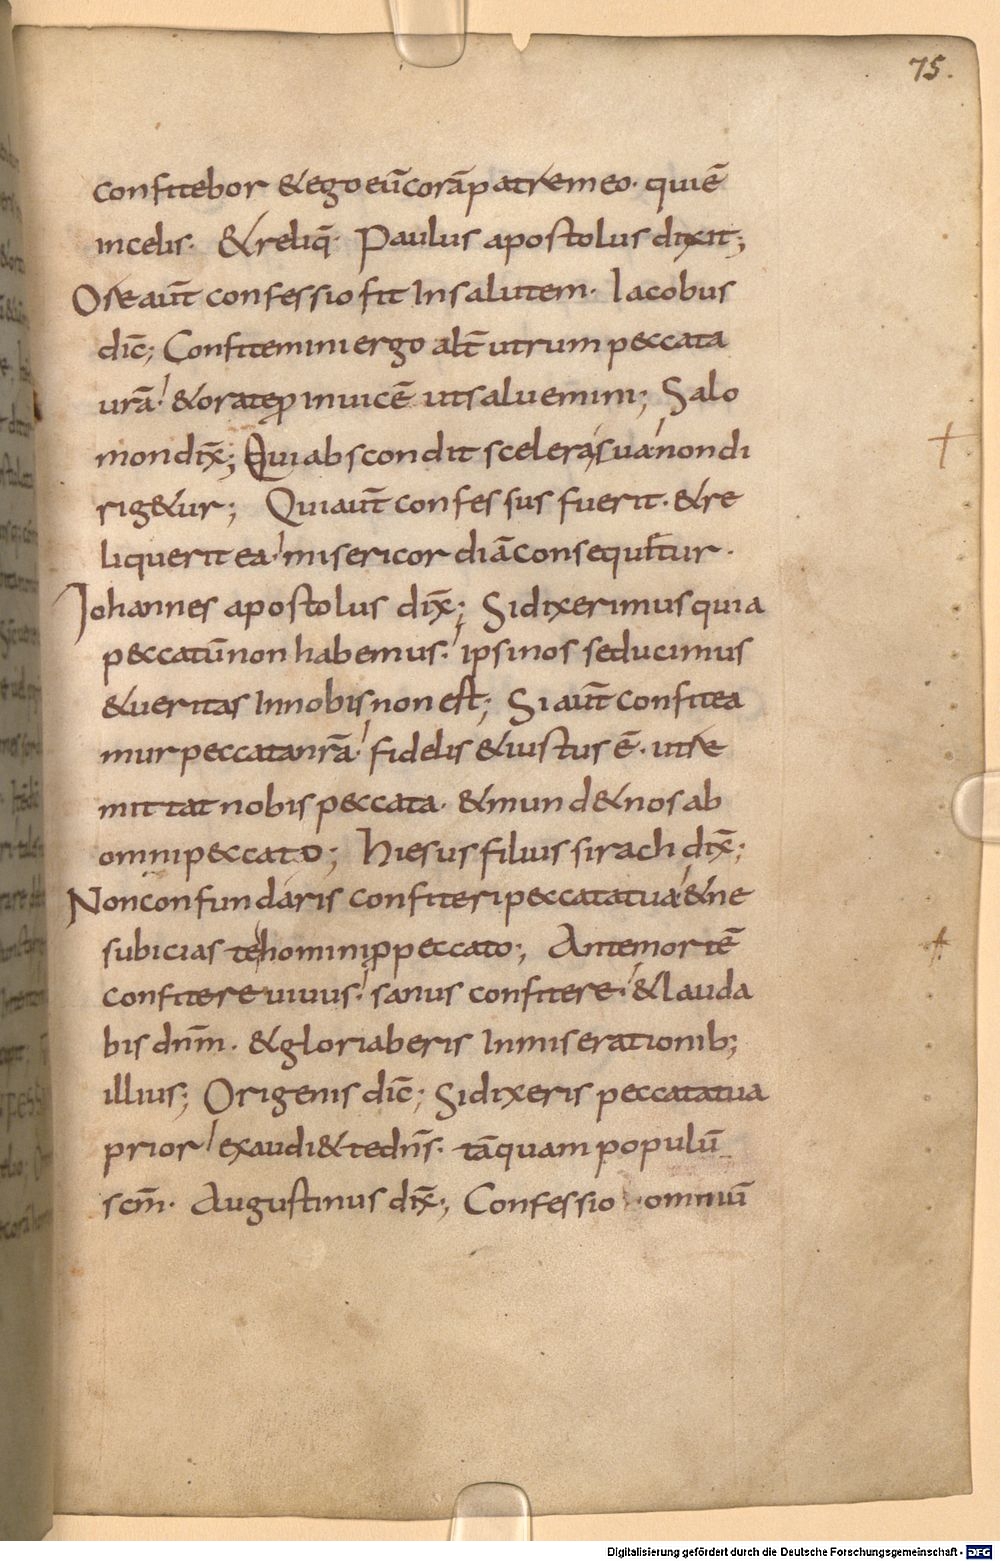 75.
confitebor & ego eū corā patre meo. qui ē
in celis. & reliq̄. Paulus apostolus dixit;
Ore aut̄ confessio fit In salutem. Iacobus
dic̄; Confitemini ergo alt̄ utrum peccata
urā. & orate ꝓ inuicē ut saluemini; Salo
mon dix̄; Qui abscondit scelera sua non di
rig&ur; Qui aut̄ confessus fuerit. & re
liquerit ea. misericordiā consequitur.
Iohannes apostolus dix̄; Si dixerimus quia
peccatū non habemus. ipsi nos seducimus
& ueritas In nobis non est; Si aut̄ confitea
mur peccata nrā. fidelis & iustus ē. ut re
mittat nobis peccata. & mund& nos ab
omni peccato; Hiesus filius sirach dix̄;
Non confundaris confiteri peccata tua & ne
subicias te homini ꝓ peccato; Ante mortē
confitere uiuus. sanus confitere. & lauda
bis dnm̄. & gloriaberis In miserationib;
illius; Origenis dic̄; Si dixeris peccata tua
prior exaudi& te dns̄. tāquam populū
scm̄. Augustinus dix̄; Confessio omniū
Digitalisierung gefördert durch die Deutsche Forschungsgemeinschaft - DFG